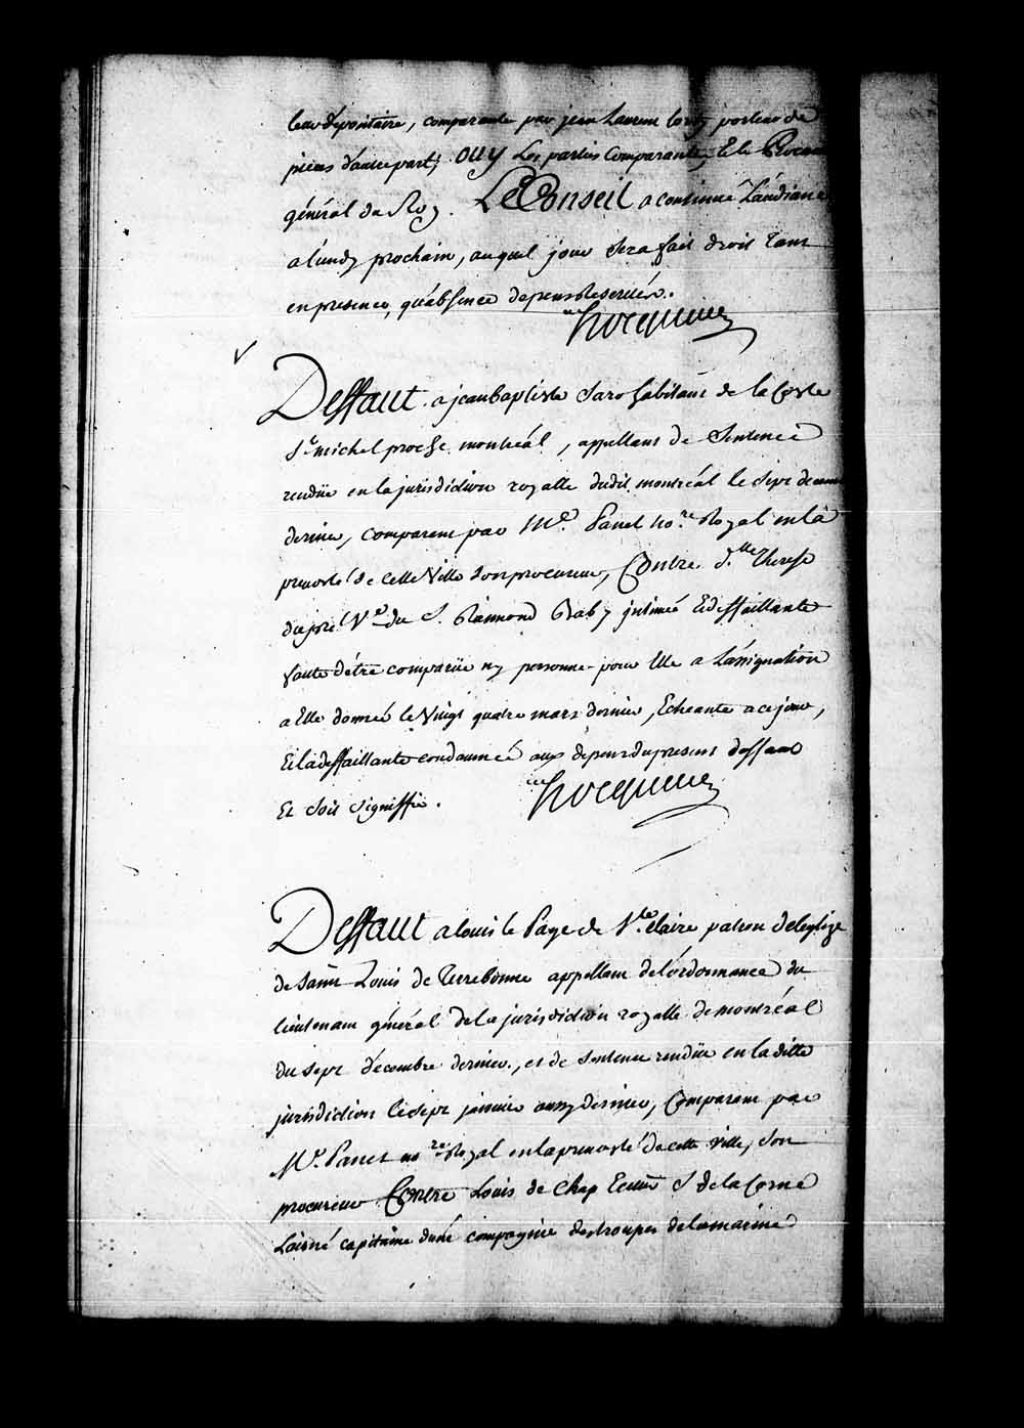 leur dépositaire, comparante par jean Laurent Lorty porteur de
pieces d'autre part; OUY Les parties Comparantes, Et le Procureur
général du Roy. LE Conseil a continué L'audiance
a lundy prochain, auquel jour sera fait droit tant
en presence, qu'absence depens Reservés.
hocquart
Deffaut a jean baptiste Saro habitant de la Coste
St. michel proche montréal, appellant de Sentence
rendüe en la jurisdiction royalle dudit montréal le Sept decembre
dernier, comparant par Me. Panet no.re Royal en la
prevosté de cette Ville son procureur, Contre d.lle Therese
dupré Ve. du S. Raimond Baby intimée Et deffaillante
faute d'être comparüe ny personne pour Elle a L'assignation
a Elle donneé le Vingt quatre mars dernier, Echeante a ce jour,
Et la deffaillante condamneé aux depens du present deffaut
Et Soit Signiffié.
hocquart
Deffaut a louis le Page de Ste. claire patron de leglize
de Saint Louis de Terrebonne appellant de l'ordonnance du
lieutenant général de la jurisdiction royalle de montréal
du sept decembre dernier, et de Sentence rendüe en la ditte
jurisdiction le Sept janvier aussy dernier, Comparant par
Me. Panet no.re Royal en la prevosté de cette ville, Son
procureur Contre Louis de Chap Ecuier S. de la Corne
Laisné capitaine d'une compagnie des troupes de la marine